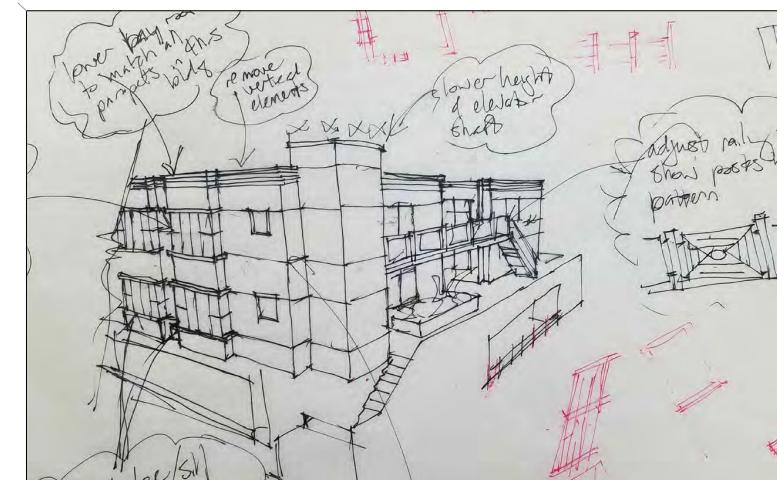 lower bay roof
to match all
parapets in this
bldg
remove
vertical
elements
lower height
of elevator
shaft
adjust rail
show posts
pattern